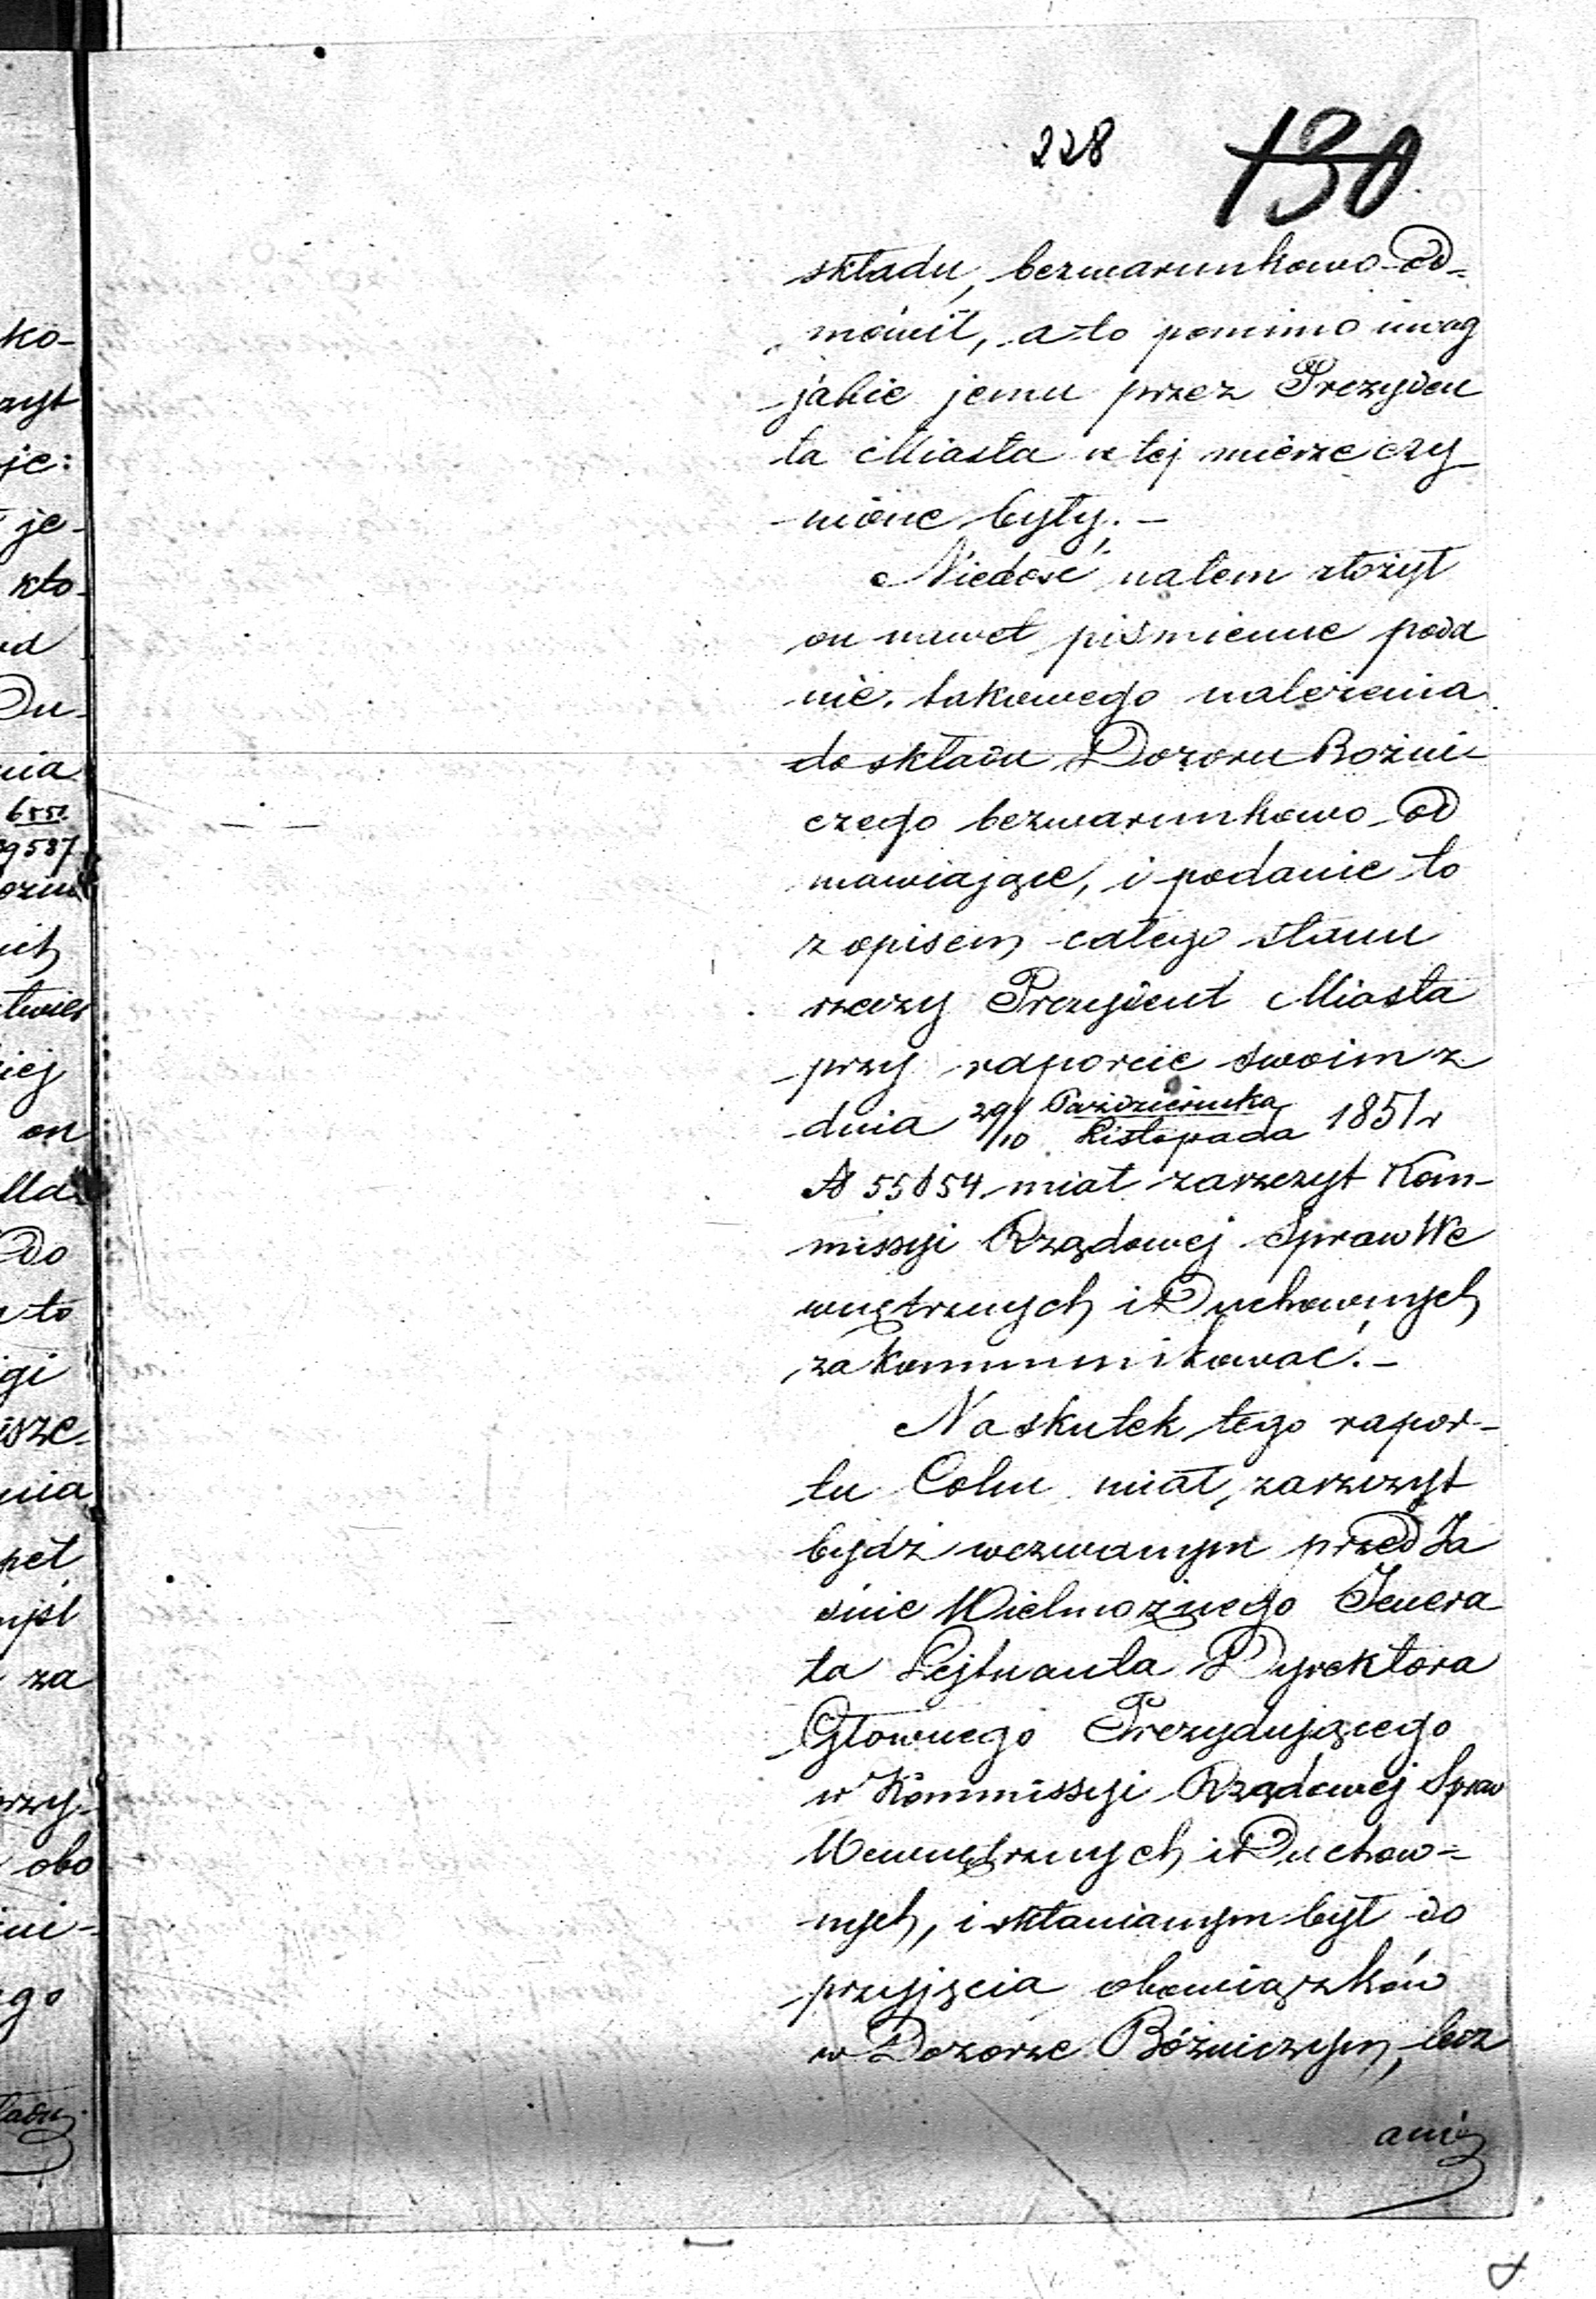 228 130
składu, bezwarunkowo od=
mówił, a to pomimo uwag
jakie jemu przez Prezyden
ta Miasta w tej mierze czy
nione były. –
Niedość natem złożył
on nawet piśmienne poda
nie. takowego należenia
do składu Dozoru Bożni-
czego bezwarunkowo od
mawiające, i podanie to
z opisem całego stanu
rzeczy Prezydent Miasta
przy raporcie swoim z
dnia 29/10 Października/Listopada 1851 r
№ 55054 miał zaszczyt Kom-
missyi Rządowej Spraw We
wnętrznych i Duchownych
zakommunikować. –
Na skutek tego rapor-
tu Cohn miał zaszczyt
bydź wezwanym przed Ja
śnie Wielmożnego Jenera
ła Lejtnanta Dyrektora
Głownego Prezydującego
w Kommissyi Rządowej Spraw
Wewnętrznych i Duchow=
nych, i skłanianym był do
przyjęcia obowiązków
w Dozorze Bóżniczym, lecz
ani
ko-
zył
je:
je-
kto-
Du-
nia
6552
9587
ich
twier
iej
on
Do
to
gi
isze-
nia
pet
za
rzy-
obo
ni-
go